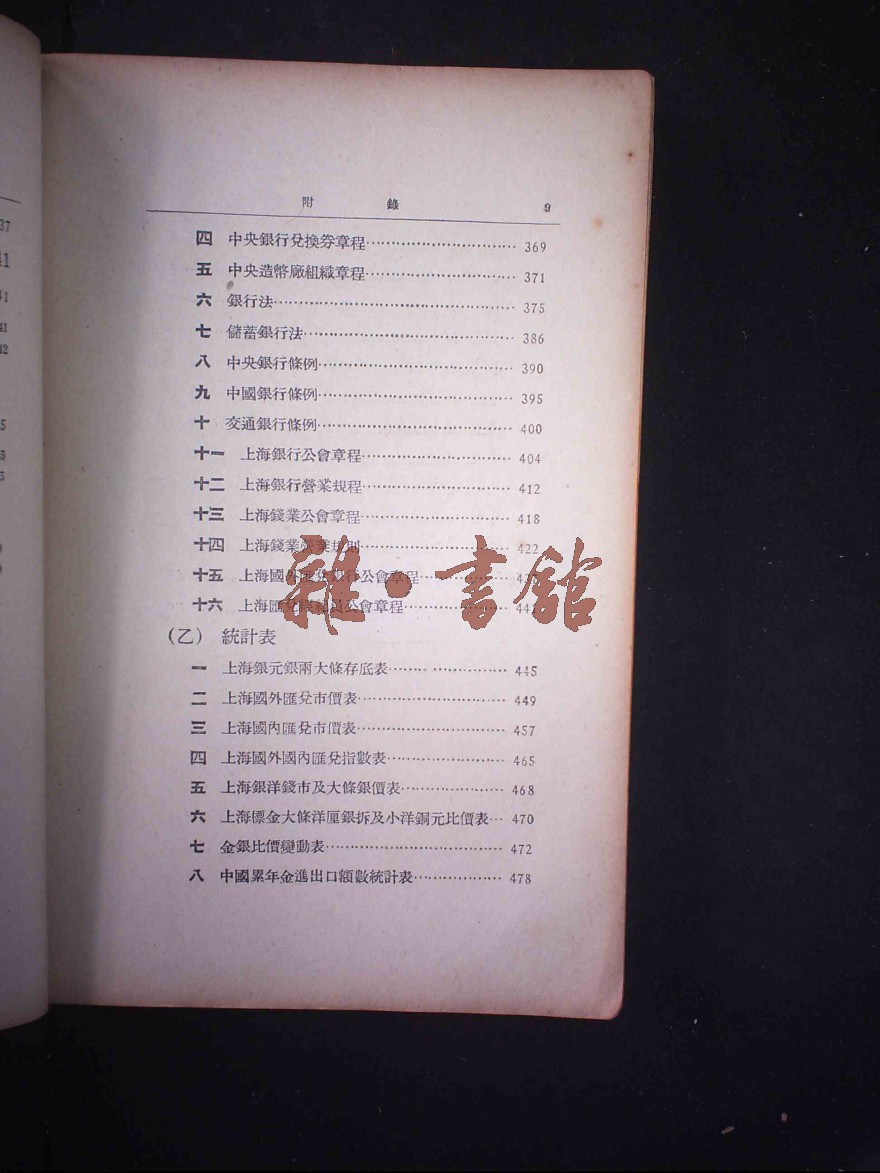 附 錄 9
四 中央銀行兌換券章程 369
五 中央造幣廠組織章程 371
六 銀行法 375
七 儲蓄銀行法 386
八 中央銀行條例 390
九 中國銀行條例 395
十 交通銀行條例 400
十一 上海銀行公會章程 404
十二 上海銀行營業規程 412
十三 上海錢業公會章程 418
十四 上海錢業營業規則 422
十五 上海國外匯兌銀行公會章程
十六 上海匯兌經紀員公會章程
雜·書館
(乙) 統計表
一 上海銀元銀兩大條存底表 445
二 上海國外匯兌市價表 449
三 上海國內匯兌市價表 457
四 上海國外國內匯兌指數表 465
五 上海銀洋錢市及大條銀價表 468
六 上海標金大條洋厘銀拆及小洋銅元比價表 470
七 金銀比價變動表 472
八 中國累年金進出口額數統計表 478
37
41
41
42
5
5
5